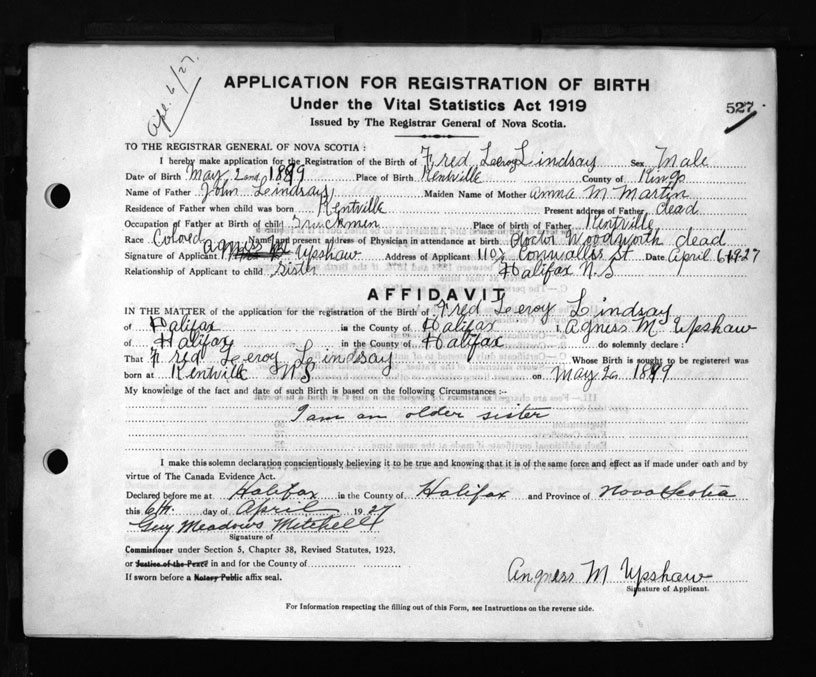 Apl. 6/27.
APPLICATION FOR REGISTRATION OF BIRTH
Under the Vital Statistics Act 1919
527
Issued by The Registrar General of Nova Scotia.
TO THE REGISTRAR GENERAL OF NOVA SCOTIA :
I hereby make application for the Registration of the Birth of Fred Leeroy Lindsay Sex Male
Date of Birth May 2 1899 Place of Birth Kentville County of Kings
Name of Father John Leindsay Maiden Name of Mother Anna M Martin
Residence of Father when child was born Kentville Present address of Father dead
Occupation of Father at Birth of child Truckmen Place of birth of Father Kentville
Race Colored Name and present address of Physician in attendance at birth Doctor Woodsworth dead
Signature of Applicant Agniss M Upshaw Address of Applicant 110 Cornwallis St Date April 6 1927
Relationship of Applicant to child Sister Halifax N.S
AFFIDAVIT
IN THE MATTER of the application for the registration of the Birth of Fred Leeroy Lindsay
of Halifax in the County of Halifax i, Agniss M Upshaw
of Halifax in the County of Halifax do solemnly declare :
That Fred Leeroy Leindsay Whose Birth is sought to be registered was
born at Kentville NS on May 2 1899
My knowledge of the fact and date of such Birth is based on the following Circumstances :—
I am an older sister
I make this solemn declaration conscientiously believing it to be true and knowing that it is of the same force and effect as if made under oath and by
virtue of The Canada Evidence Act.
Declared before me at Halifax in the County of Halifax and Province of Nova Scotia
this 6th. day of April 1927
Guy Meadows Mitchell
Signature of
Commissioner under Section 5, Chapter 38, Revised Statutes, 1923,
or Justice of the Peace in and for the County of
If sworn before a Notary Public affix seal.
Angness M Upshaw
Signature of Applicant.
For Information respecting the filling out of this Form, see Instructions on the reverse side.